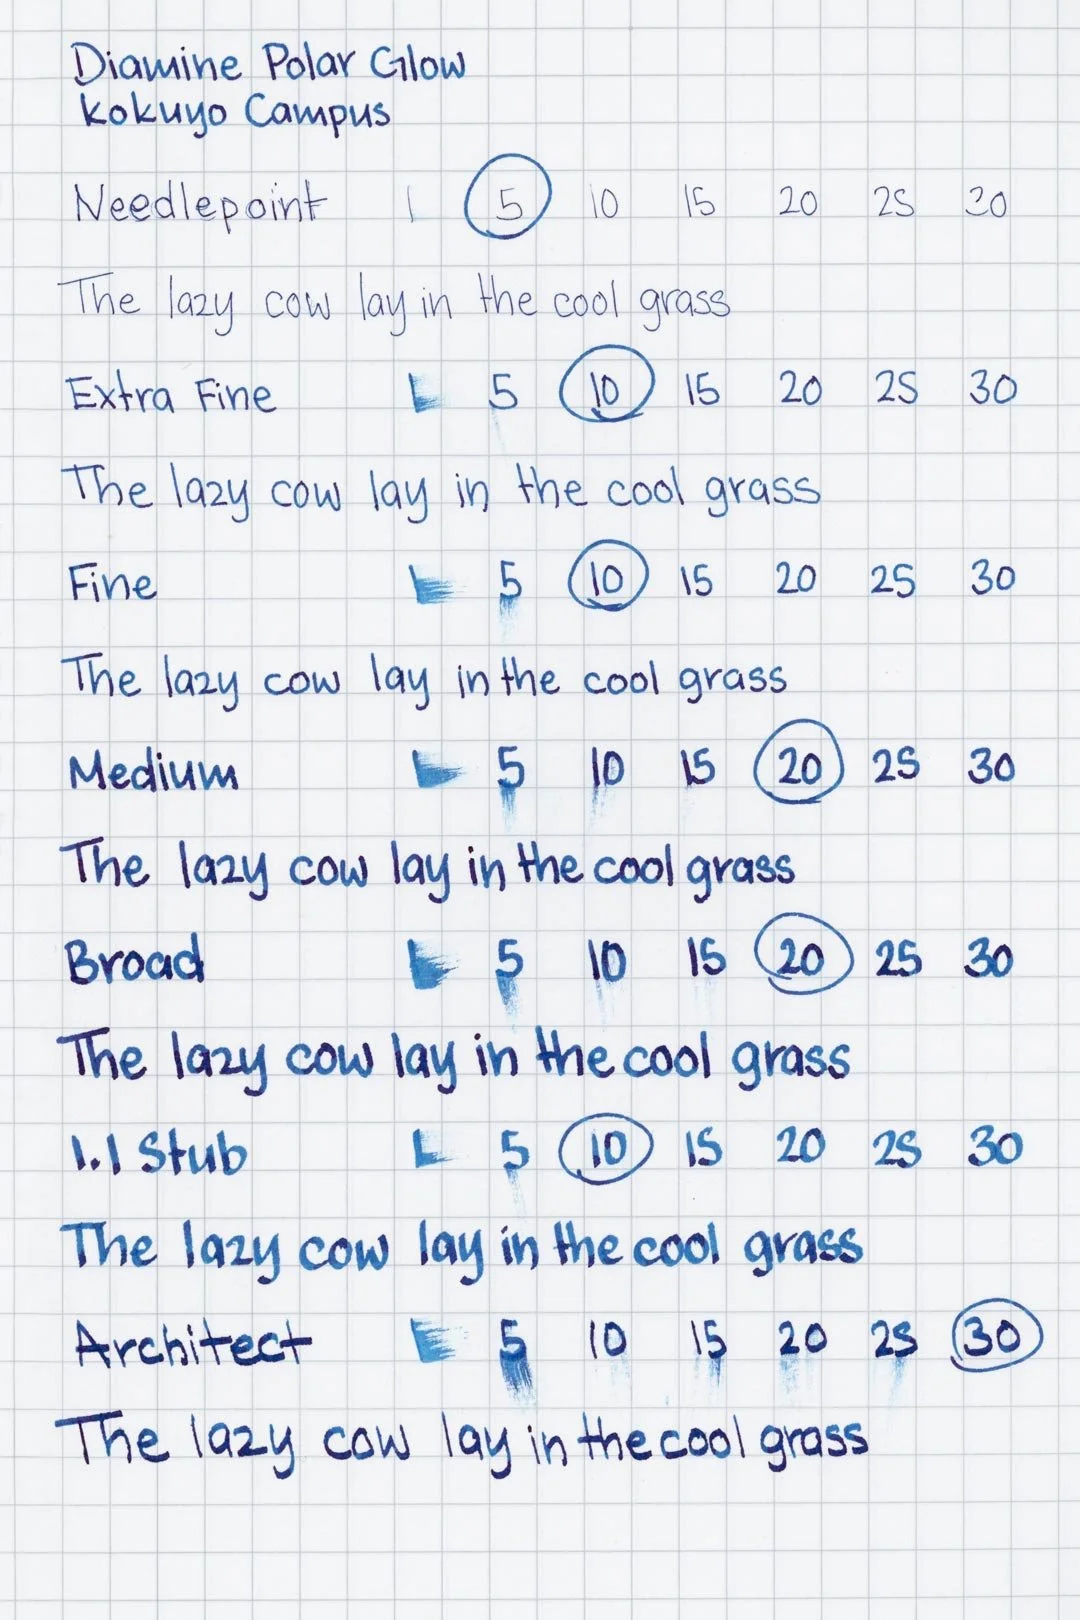 Diamine Polar Glow
Kokuyo Campus
Needlepoint 1 5 10 15 20 25 30
The lazy cow lay in the cool grass
Extra Fine 1 5 10 15 20 25 30
The lazy cow lay in the cool grass
Fine 1 5 10 15 20 25 30
The lazy cow lay in the cool grass
Medium 1 5 10 15 20 25 30
The lazy cow lay in the cool grass
Broad 1 5 10 15 20 25 30
The lazy cow lay in the cool grass
1.1 Stub 1 5 10 15 20 25 30
The lazy cow lay in the cool grass
Architect 1 5 10 15 20 25 30
The lazy cow lay in the cool grass